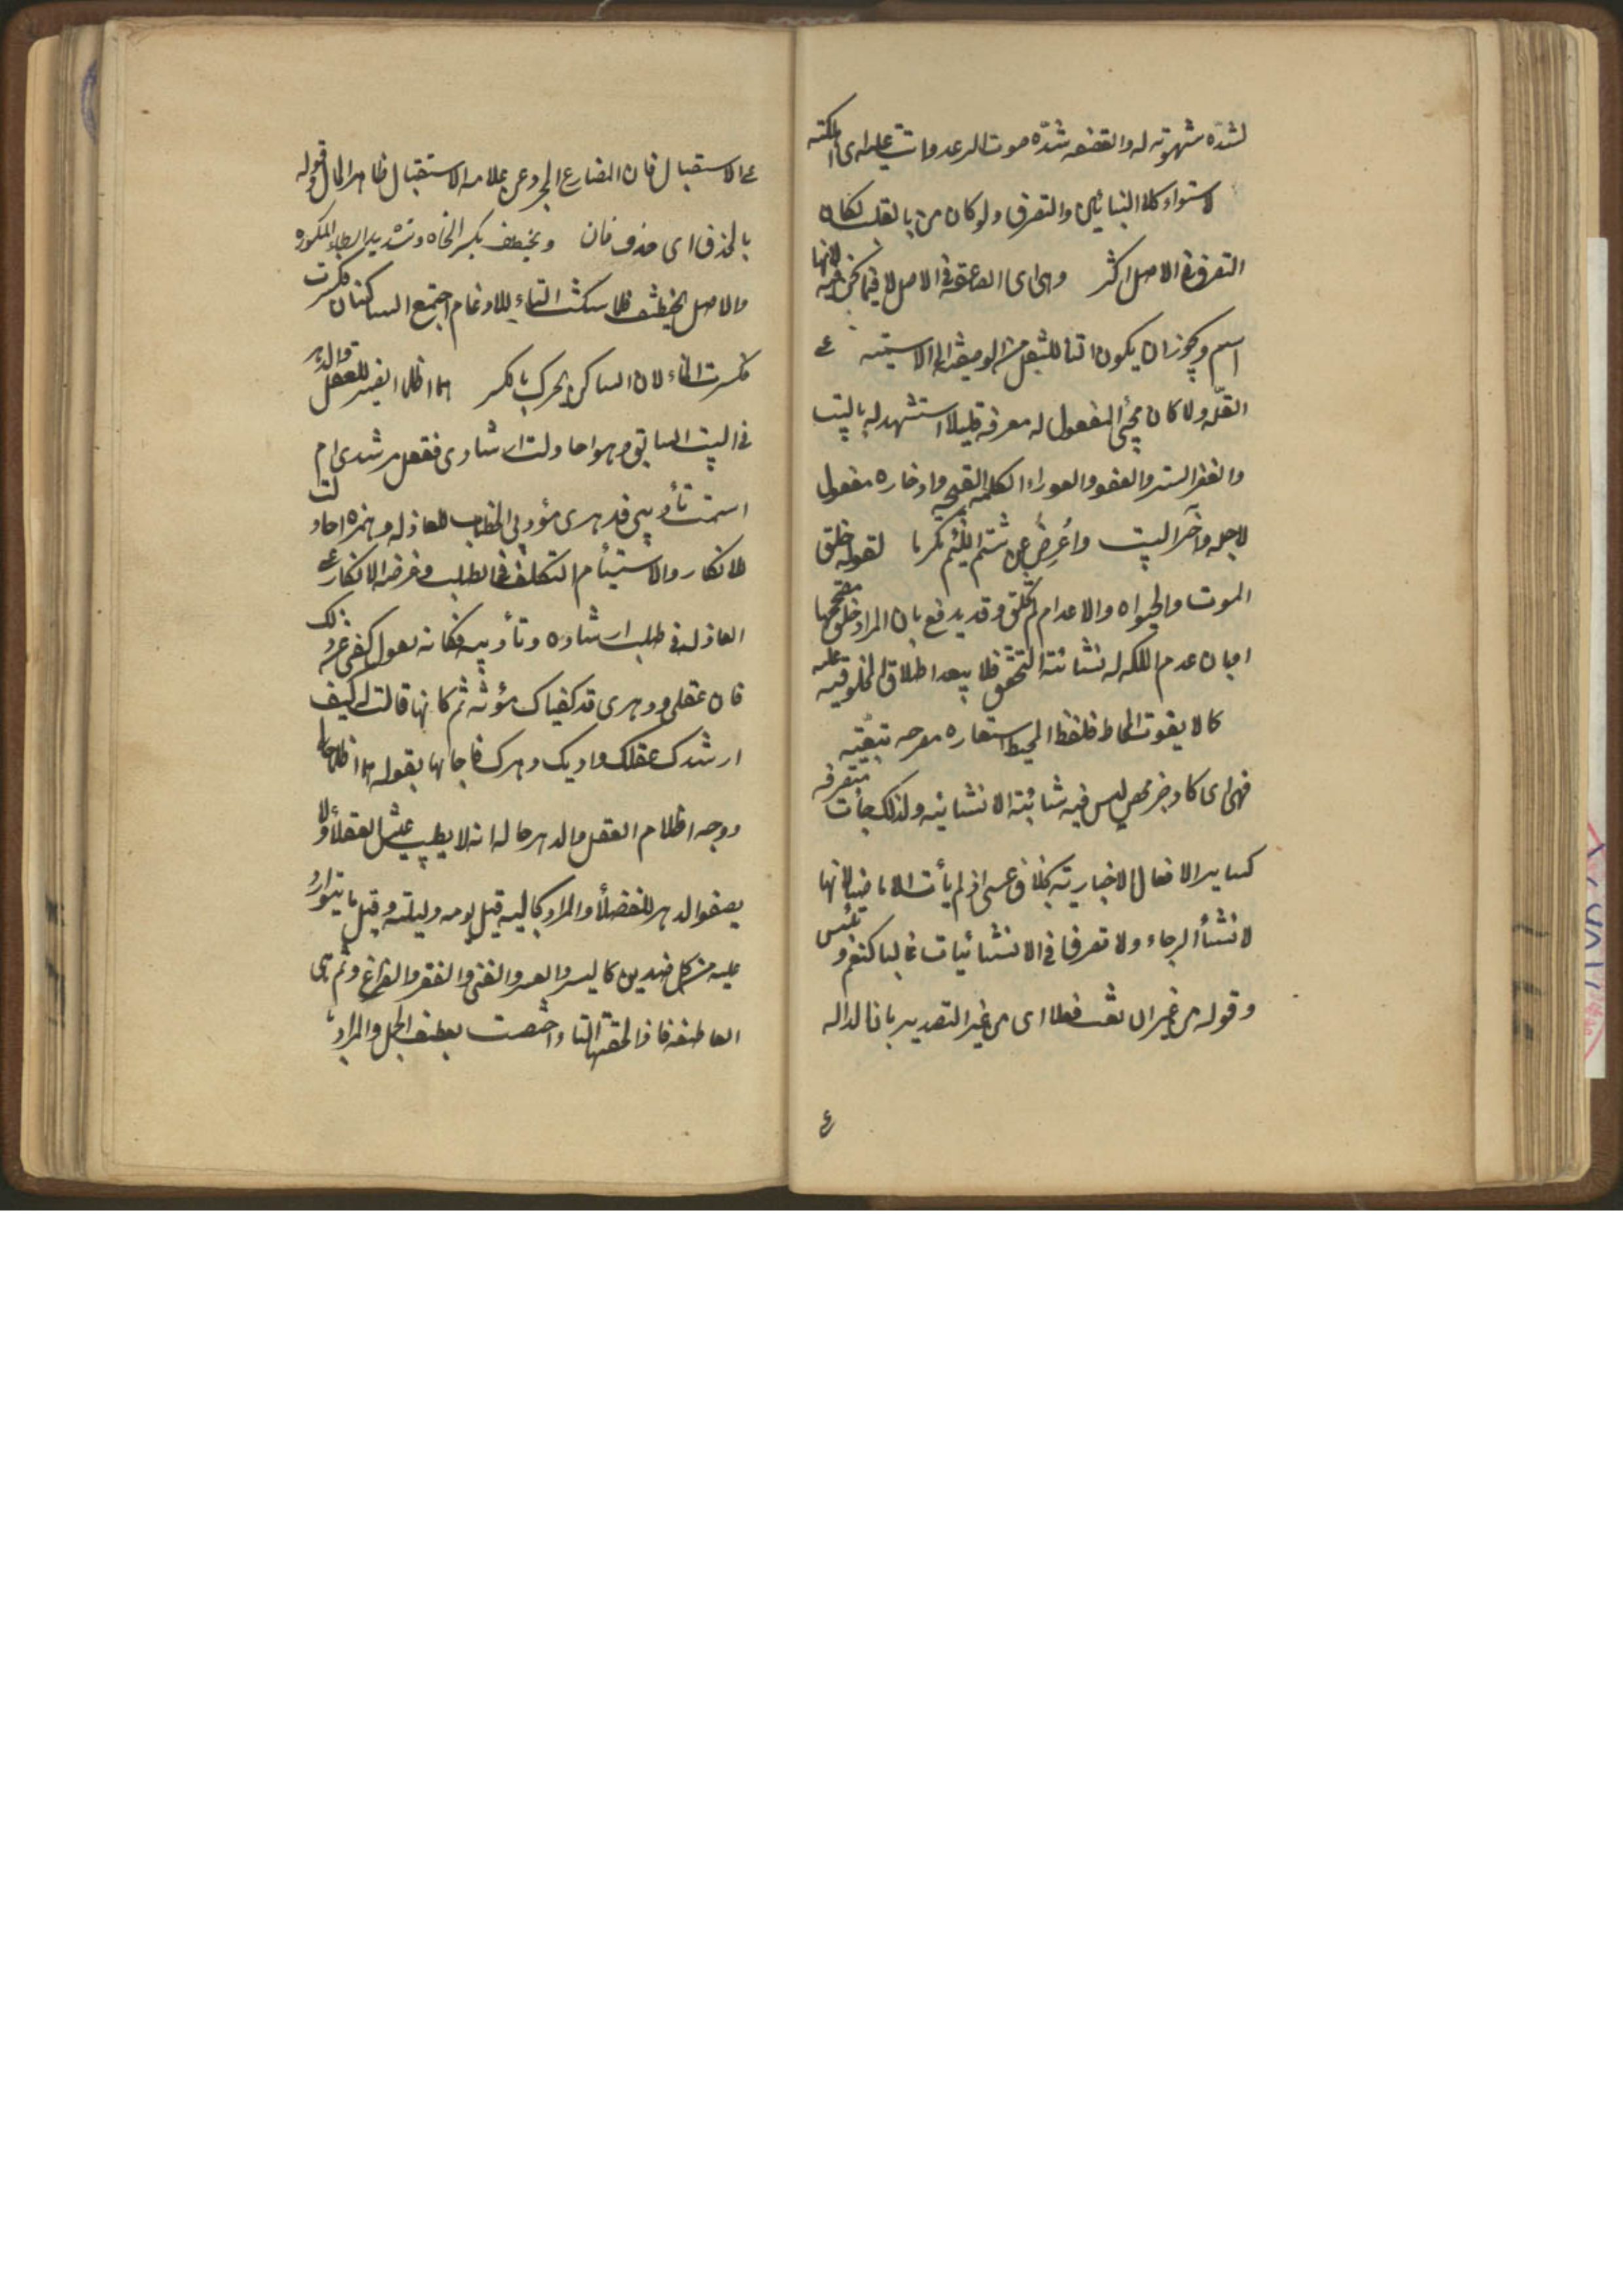 لشدّه شهوته له والقصفه شدّه صوت الرعد ومات عليه اى اهلكته
لاستواء كلا البنائين والتصرف ولو كان من بالقلب لكان
التصرف فى الاصل اكثر وهى اى الصاعقه فى الاصل لا فيما نحن فيه لانها
اسم ويجوز ان يكون التأ للنقل من الوصفية الى الاسميته على
القلّه ولا كان مجئ المفعول له معرفه قليلا استشهد له بالبيت
والغفر الستر والعفو والعوراء الكلمه القبيحه وادخاره مفعول
لاجله وآخر البيت وأعرض عن شتم اللئيم تكرما لقوله خلق
الموت والحيوة والاعدام لم تخلق وقد يدفع بان المراد خلق مصححها
او بان عدم الملكه له شائبة التحقق فلا يبعد اطلاق المخلوقيه عليه
كما لا يفوت المحاط فلفظ المحيط استعاره مصرحه تبعيّه
فهى اى كاد خبر محض ليس فيه شائبة الانشائيه ولذلك جأت متصرفه
كساير الافعال الاخباريّه بخلاف عسى اذ لم يأت الا ماضيا لانها
لانشأ الرجاء ولا تصرف فى الانشائيات غالبا كنعم وبئس
وقوله من غير ان فعلا اى من غير التصدير بان الداله
ع
على الاستقبال فان المضارع المجرد عن علامه الاستقبال ظاهر الحال وقوله
بالحذف اى حذف فان ويخطف بكسر الخاء وتشديد الطاء المكسوره
والاصل يختطف فلما سكنت التاء للادغام اجتمع الساكنان فكسرت
فكسرت الخاء لان الساكن يحرك بالكسر هما اظلما الضمير للعقل والدهر
فى البيت السابق وهو احاولت ارشادى فعقلى مرشدى ام
استمت تأديبى فدهرى مؤدبى الخطاب للعاذله وهمزه احاولت
للانكار والاستيام التكلف فى الطلب وغرضه الانكار على
العاذله فى طلب ارشاده وتأديبه فكانه يقول كفى عن ذلك
فان عقلى ودهرى قد كفياك مؤنته ثم كانها قالت له كيف
ارشدك عقلك وادبك دهرك فاجابها بقوله هما اظلما حالى
ووجه اظلام العقل والدهر حاله انه لا يطيب عيش العقلأ ولا
يصفو الدهر للفضلأ والمراد بحاليه قيل يومه وليلته وقيل ما يتوارد
عليه من كل ضدين كاليسر والعسر والغنى والفقر والفراغ وثم هى
العاطفه فاذا لحقتها التا اختصت بعطف الجمل والمراد